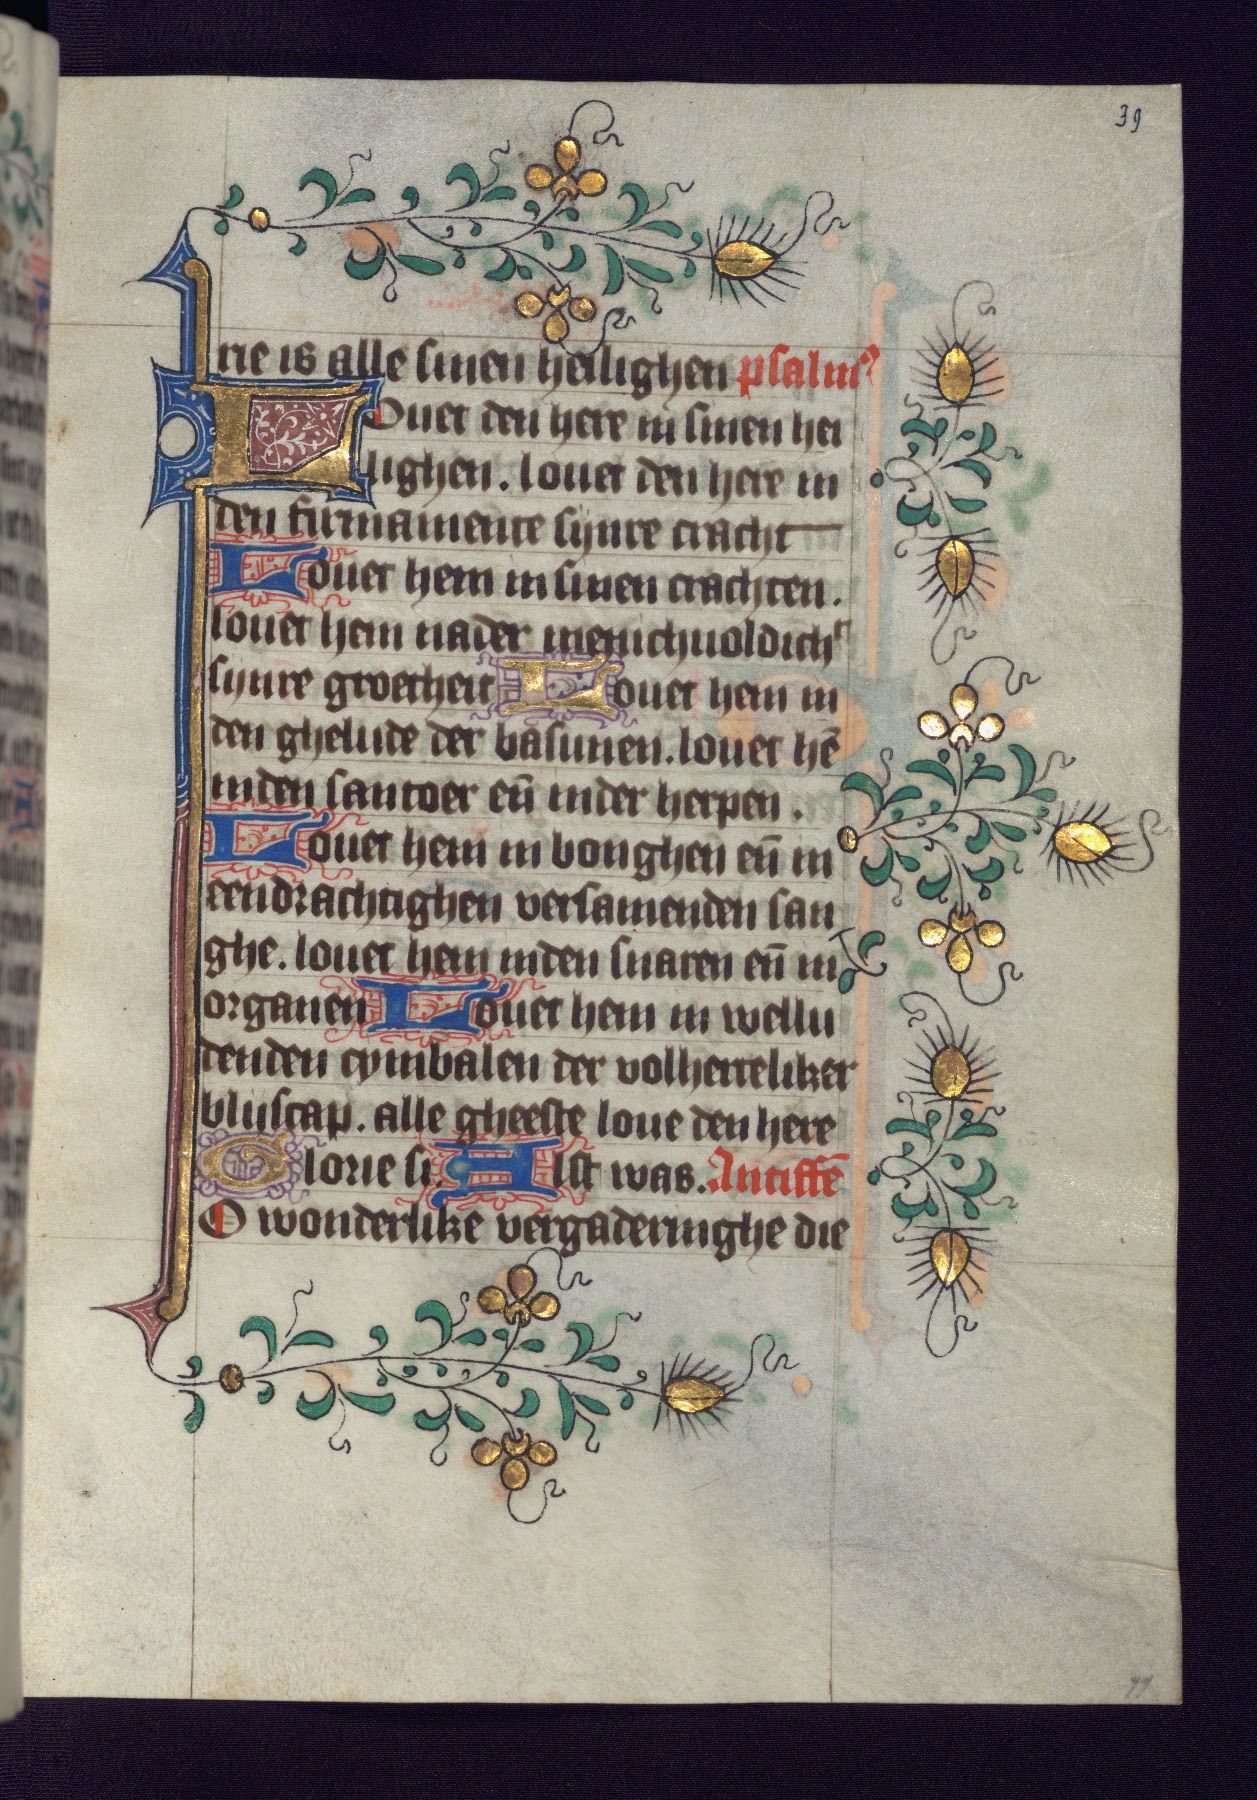 39
rie is alle sinen heilighen psalm⁹
Louet den here in sinen hei
lighen. louet den here in
den firmamente sijnre cracht
Louet hem in sinen crachten.
louet hem nader menichuoldich
sijnre groetheit Louet hem in
den ghelude der basunen. louet hē
inden santoer eñ inder herpen.
Louet hem in bonghen eñ in
eendrachtighen versamenden san
ghe. louet hem inden snaren eñ in
organen Louet hem in wellu
denden cymbalen der volherreliker
blijscap. alle gheeste loue den here
Glorie si. Alst was. Antiffē
O wonderlike vergaderinghe die